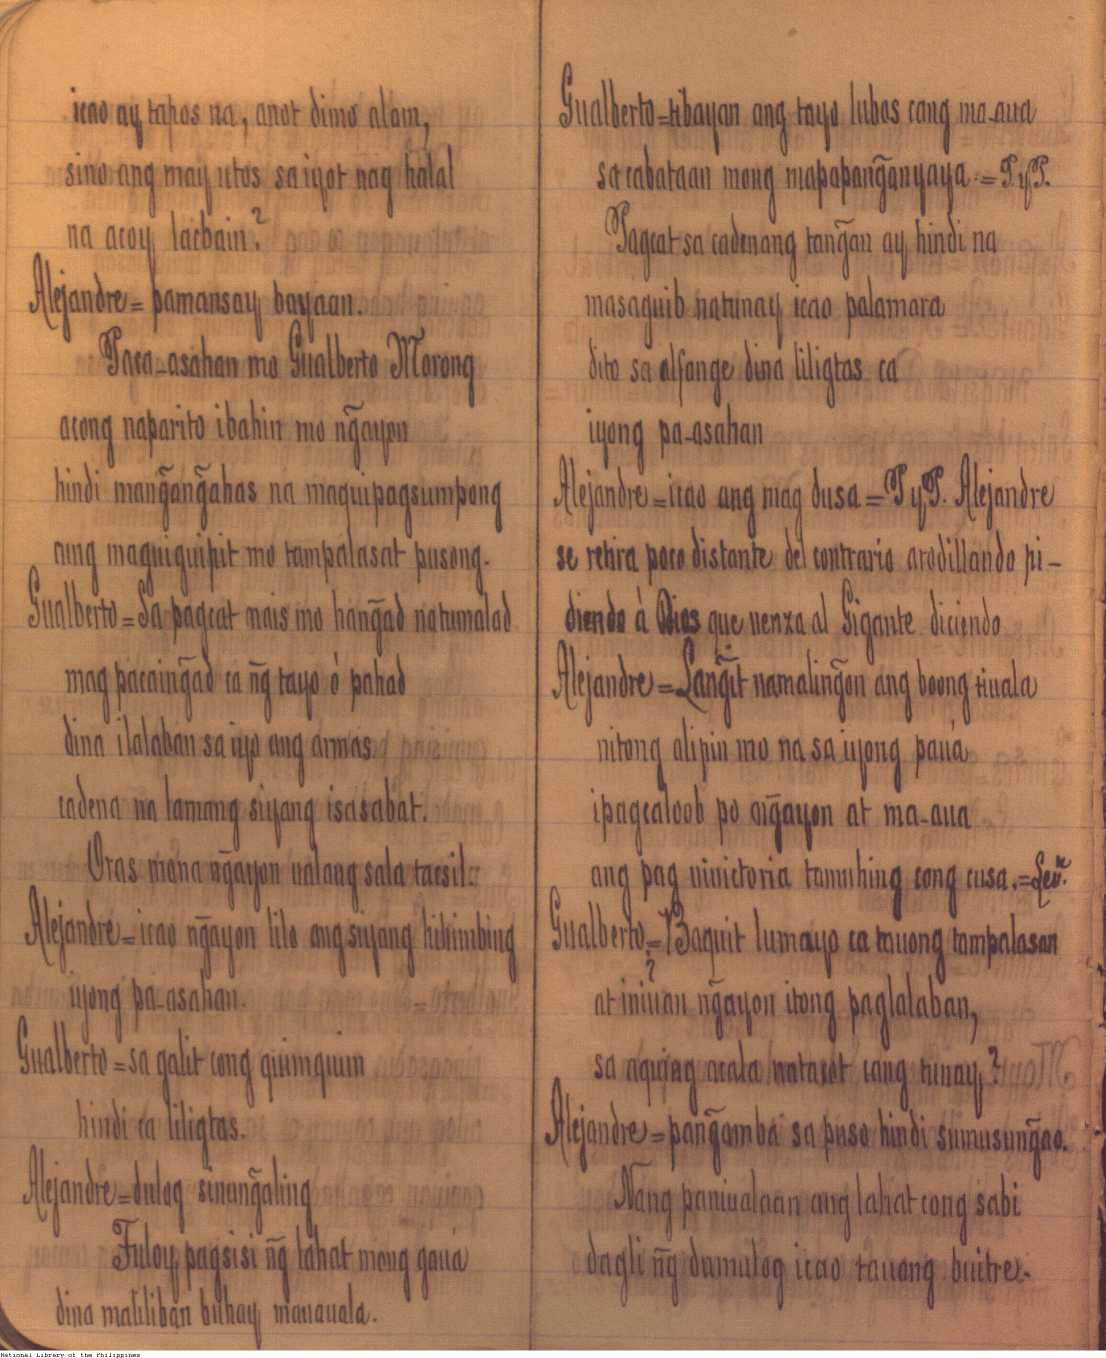 icao ay tapos na, anot dimo alam,
sino ang may utos sa iyot nag halal
na acoy lacbain?
Alejandre = pamansay bayaan.
Paca-asahan mo Gualberto Morong
acong naparito ibahin mo ng̃ayon
hindi mang̃ang̃ahas na maquipagsumpong
cung maguiguipit mo tampalasat pusong.
Gualberto = Sa pagcat nais mo hang̃ad natumalad
mag pacaing̃ad ca ng̃ tayo ó pahad
dina ilalaban sa iyo ang armas
cadena na lamang siyang isasabat.
Oras mona ng̃ayon ualang sala tacsil:
Alejandre = icao ng̃ayon lilo ang siyang hihimbing
iyong pa-asahan.
Gualberto = sa galit cong quimquim
hindi ca liligtas.
Alejandre = dulog sinung̃aling
Tuloy pagsisi ng̃ lahat mong gauá
dina maliliban buhay mauauala.
Gualberto = tibayan ang tayo lubos cang ma-aua
sa cabataan mong mapapang̃anyaya. = P. y P.
Pagcat sa cadenang tang̃an ay hindi na
masaguib natunay icao palamara
dito sa alfange dina liligtas ca
iyong pa-asahan
Alejandre = icao ang mag dusa = P y P. Alejandre
se retira poco distante del contrario arodillando pi-
diendo à Dios que venza al Gigante diciendo
Alejandre = Lang̃it namaling̃on ang boong tiuala
nitong alipin mo na sa iyong pauá
ipagcaloob po ng̃ayon at ma-aua
ang pag vivictoria tamuhing cong cusa. =
Gualberto. = Baquit lumayo ca tauong tampalasan
at iniuan ng̃ayon itong paglalaban,
sa aquing acala natacot cang tunay?
Alejandre = pang̃amba sa puso hindi sumusung̃ao.
Nang paniualaan ang lahat cong sabi
dagli ng̃ dumulog icao tauong buitre.
National Library of the Philippines